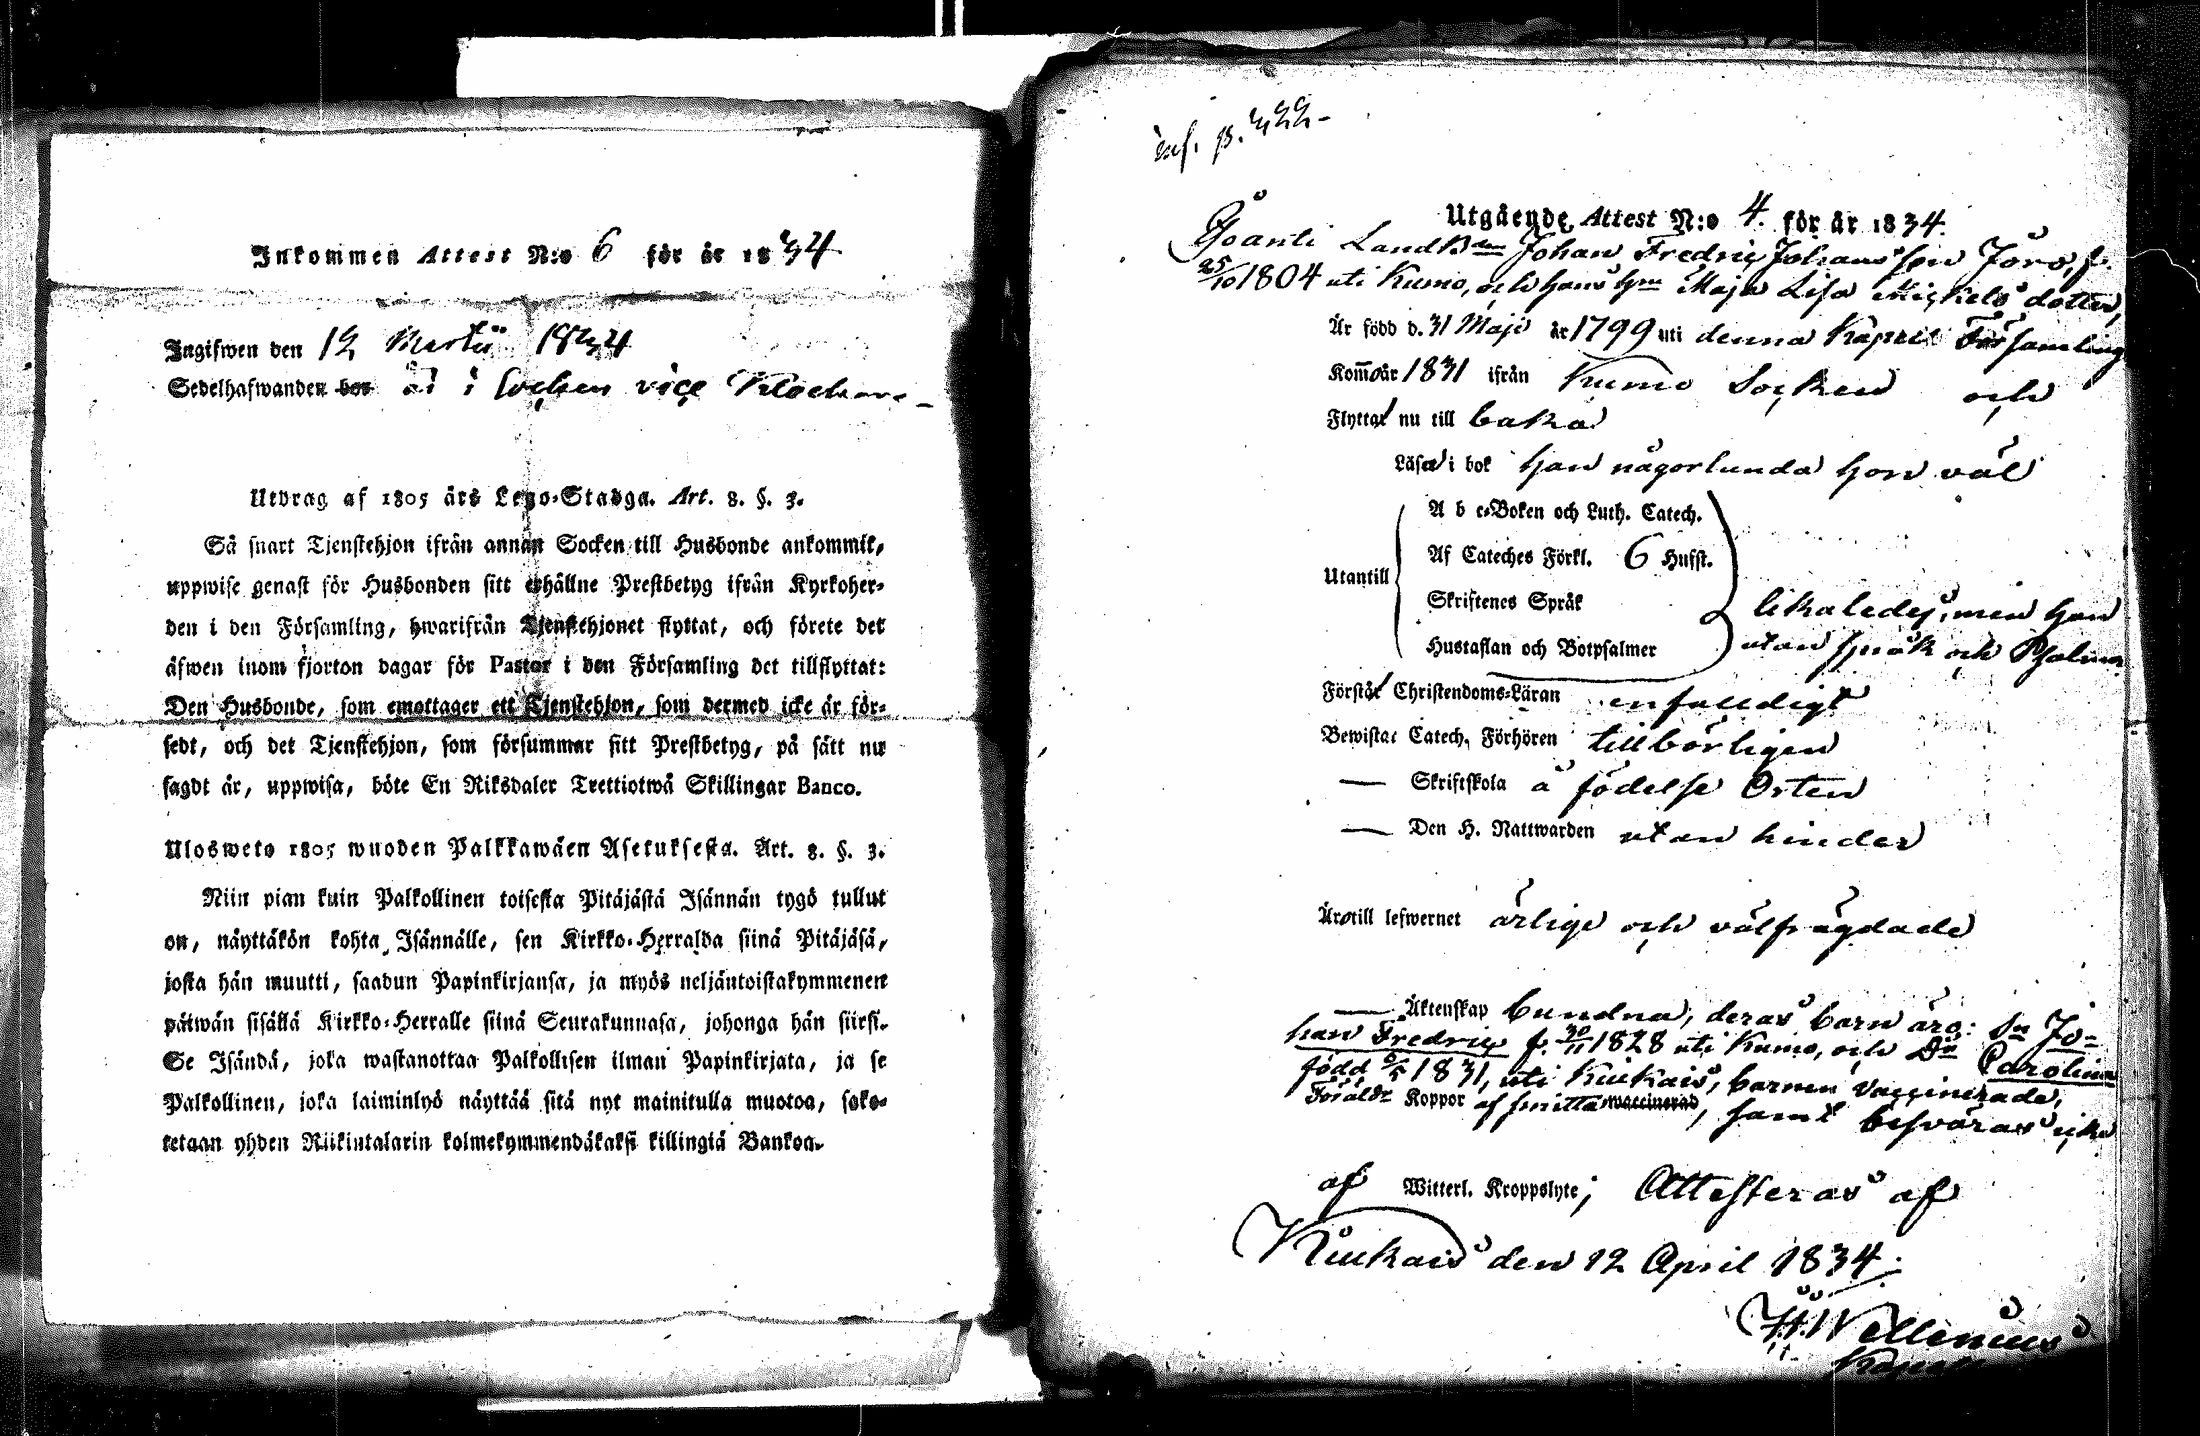 Inkommen Attest N:o 6 för år 1834
Ingifwen den 12 Martii 1834
Sedelhafwanden bor är i socknen vice Klockare
Utdrag af 1805 års Lego-Stadga. Art. 8. §. 3.
Så snart Tjenstehjon ifrån annan Socken till Husbonde ankommit,
uppwise genast för Husbonden sitt erhållne Prestbetyg ifrån Kyrkoher-
den i den Församling, hwarifrån Tjenstehjonet flyttat, och förete det
äfwen inom fjorton dagar för Pastor i den Församling det tillflyttat:
Den Husbonde, som emottager ett Tjenstehjon, som dermed icke är för-
sedt, och det Tjenstehjon, som försummar sitt Prestbetyg, på sätt nu
sagdt är, uppwisa, böte En Riksdaler Trettiotwå Skillingar Banco.
Ulosweto 1805 wuoden Palkkawäen Asetuksesta. Art. 8. §. 3.
Niin pian kuin Palkollinen toisesta Pitäjästä Isännän tygö tullut
on, näyttäkön kohta Isännälle, sen Kirkko-Herralda siinä Pitäjäsä,
josta hän muutti, saadun Papinkirjansa, ja myös neljäntoistakymmenen
päiwän sisällä Kirkko-Herralle siinä Seurakunnasa, johonga hän siirsi.
Se Isändä, joka wastanottaa Palkollisen ilman Papinkirjata, ja se
Palkollinen, joka laiminlyö näyttää sitä nyt mainitulla muotoa, sako-
tetaan yhden Riikintalarin kolmekymmendäkaksi killingiä Bankoa.
inf. p. 422
Utgående Attest N:o 4. för år 1834.
LandBdn Johan Fredric Johansson Joro, f.
25/10 1804 uti Kumo, och hans Hu Maja Lisa Mickelsdotter,
Är född d. 31 Maji år 1799 uti denna Kapell Församling
Kom̅o år 1831 ifrån Kumo Socken och
Flytta nu till baka
Läsa i bok han någorlunda hon väl
A b c-Boken och Luth. Catech.
Af Cateches Förkl. 6 Hufst.
Utantill
Skriftenes Språk likaledes, men han
Hustaflan och Botpsalmer utan språk och Psalmer
Förstå Christendoms-Läran enfaldigt
Bewistat Catech. Förhören tillbörligen
— Skriftskola å födelse Orten
— Den H. Nattwarden utan hinder
Äro till lefwernet ärlige och välfrägdade
— Äktenskap bundna, deras barn äro: Sn Jo-
han Fredric f. 30/11 1828 uti Kumo, och Dr Carolina
född 5/5 1831, uti Kiukais, barnen vaccinerade,
Föräldr Koppor af smitta waccinerad, samt besväras icke
af Witterl. Kroppslyte; Attesteras af
Kiukais den 12 April 1834.
H. Wellenius